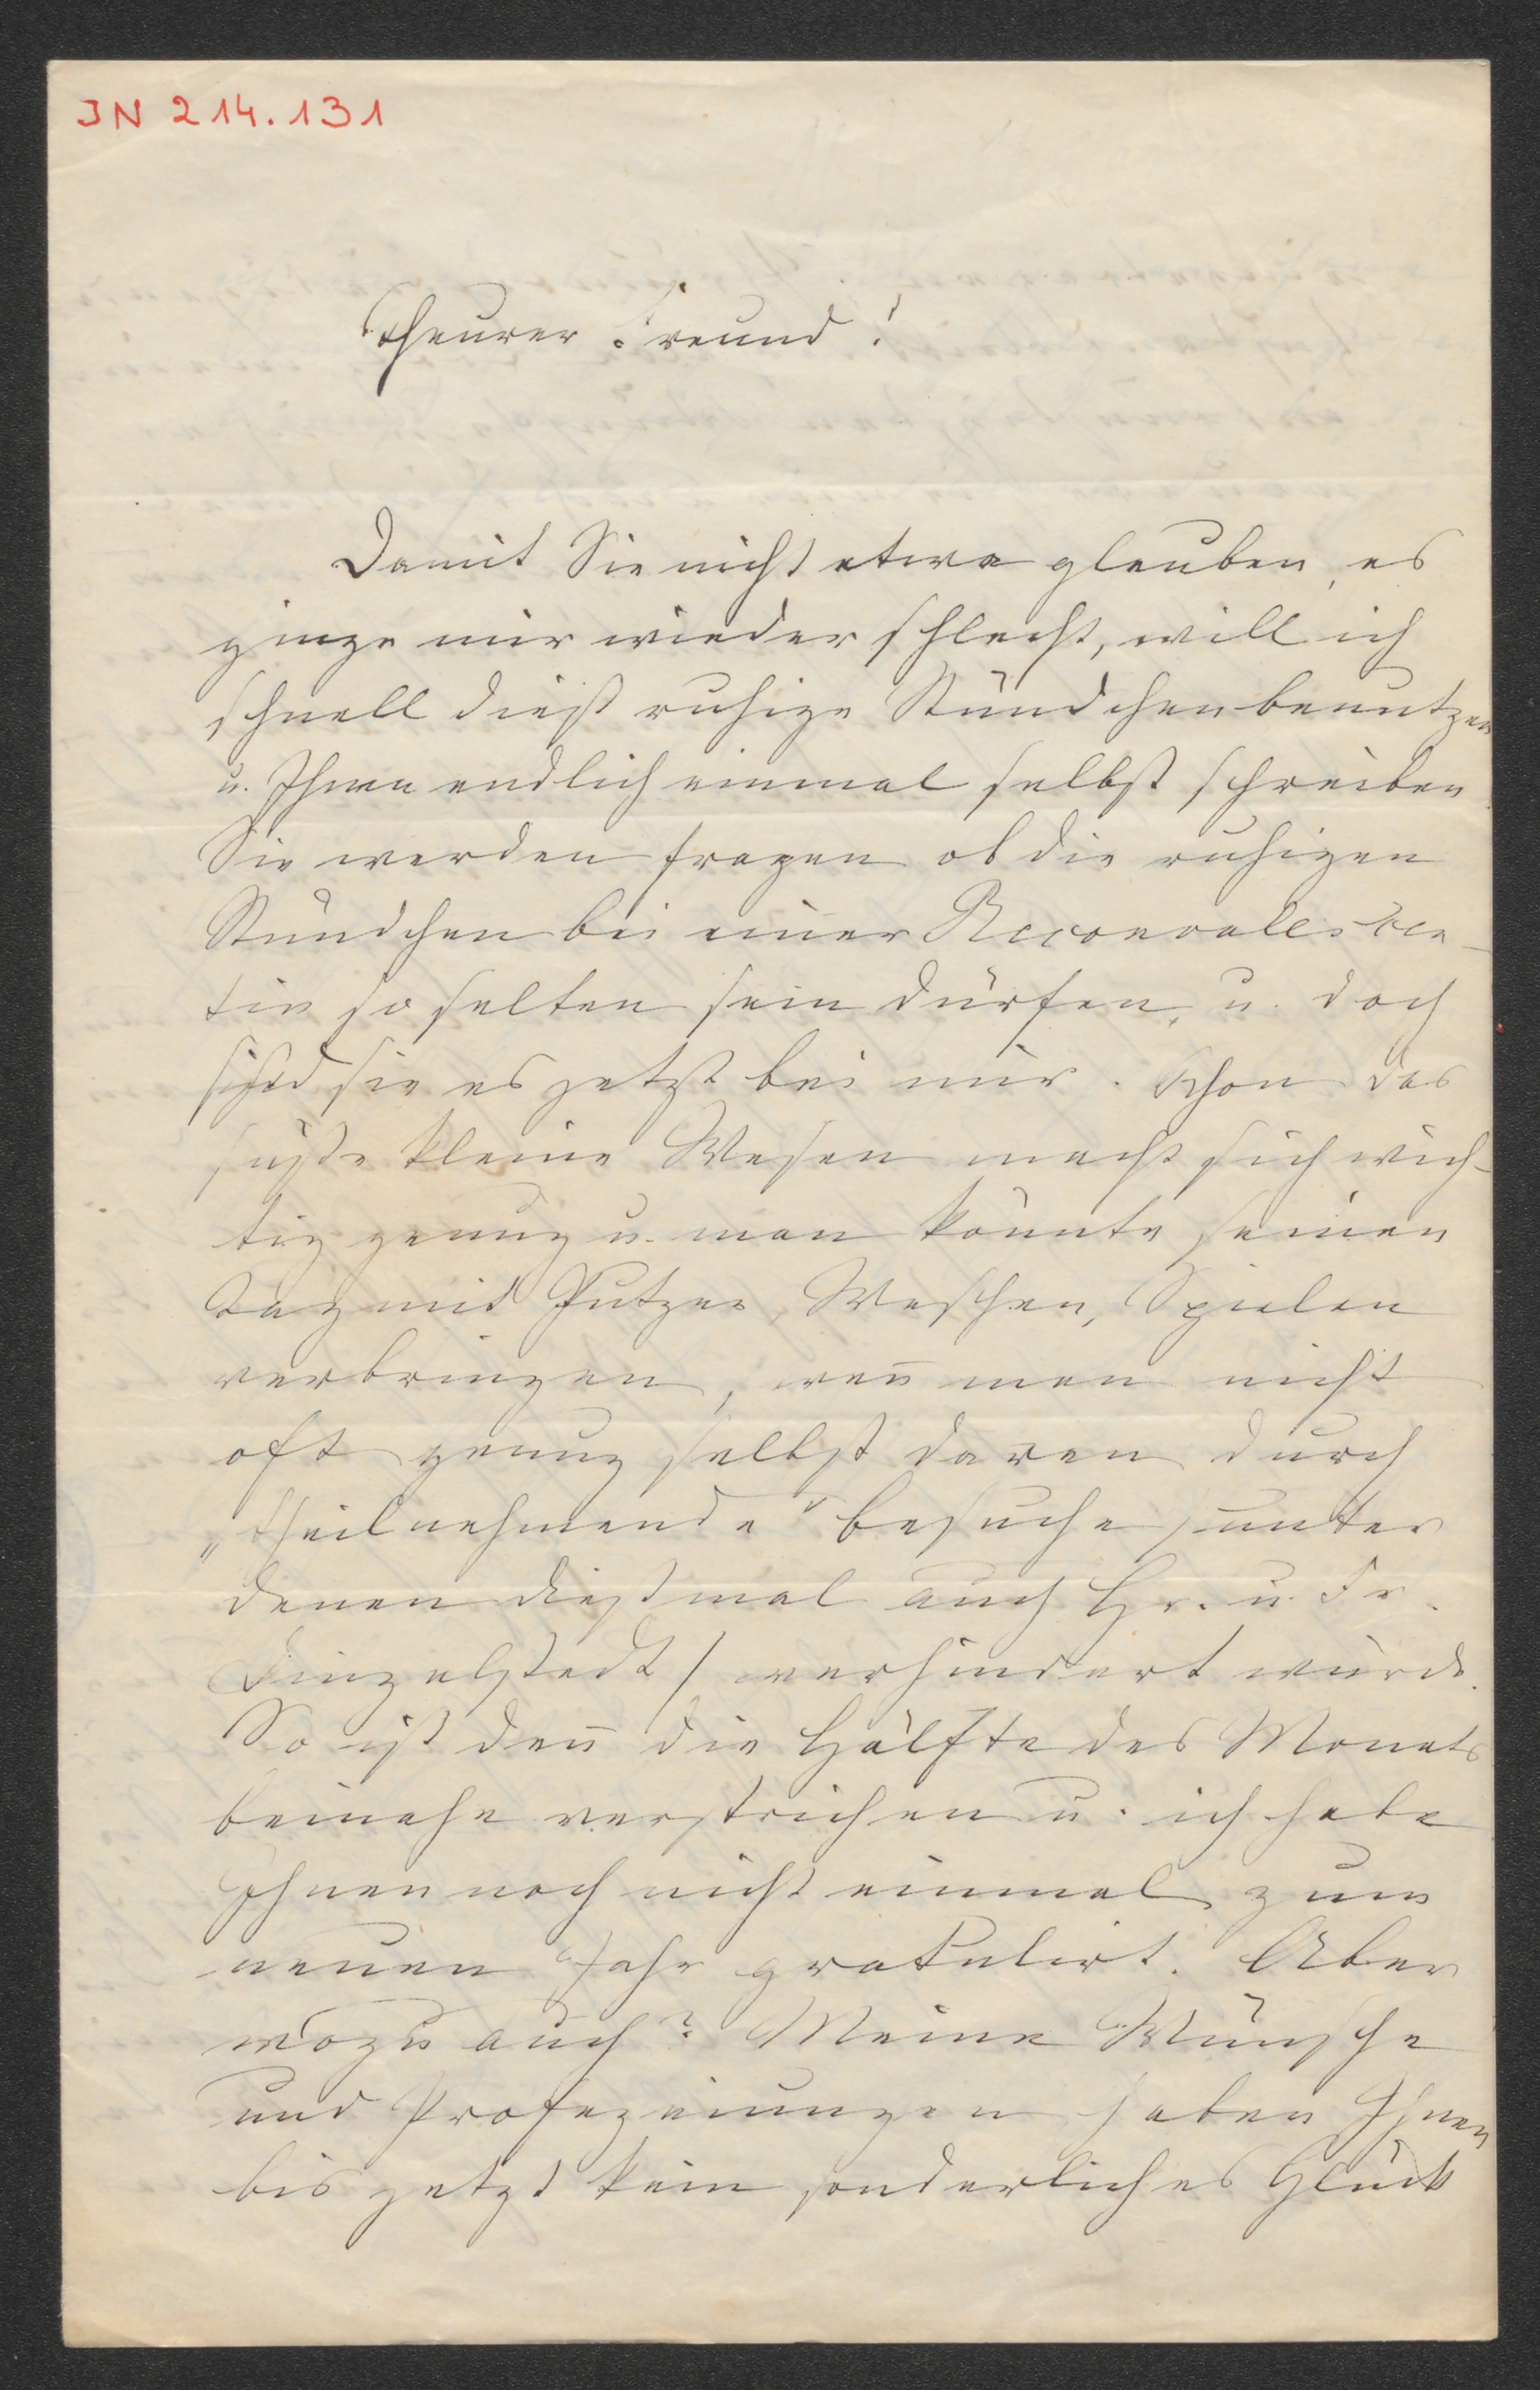 JN 214.131
Theurer Freund!
Damit Sie nicht etwa glauben, es
ginge mir wieder schlecht, will ich
schnell dieß ruhige Stündchen benutzen
u. Ihnen endlich einmal selbst schreiben
Sie werden fragen ob die ruhigen
Stündchen bei einer Reconvallescen-
tin so selten sein dürfen, u. doch
sind sie es jetzt bei mir. Schon das
süße kleine Wesen macht sich wich-
tig genug u. man könnte seinen
Tag mit Putzen, Waschen, Spielen
verbringen, weñ man nicht
oft genug selbst daran durch
„theilnehmende" Besuche /unter
denen dießmal auch Hr. u. Fr.
Dingelstedt/ verhindert würde.
So ist deñ die Hälfte des Monats
beinahe verstrichen u. ich habe
Ihnen noch nicht einmal zum
neuen Jahr gratulirt. Aber
wozu auch? Meine Wünsche
und Profezeiungen haben Ihnen
bis jetzt kein sonderliches Glück